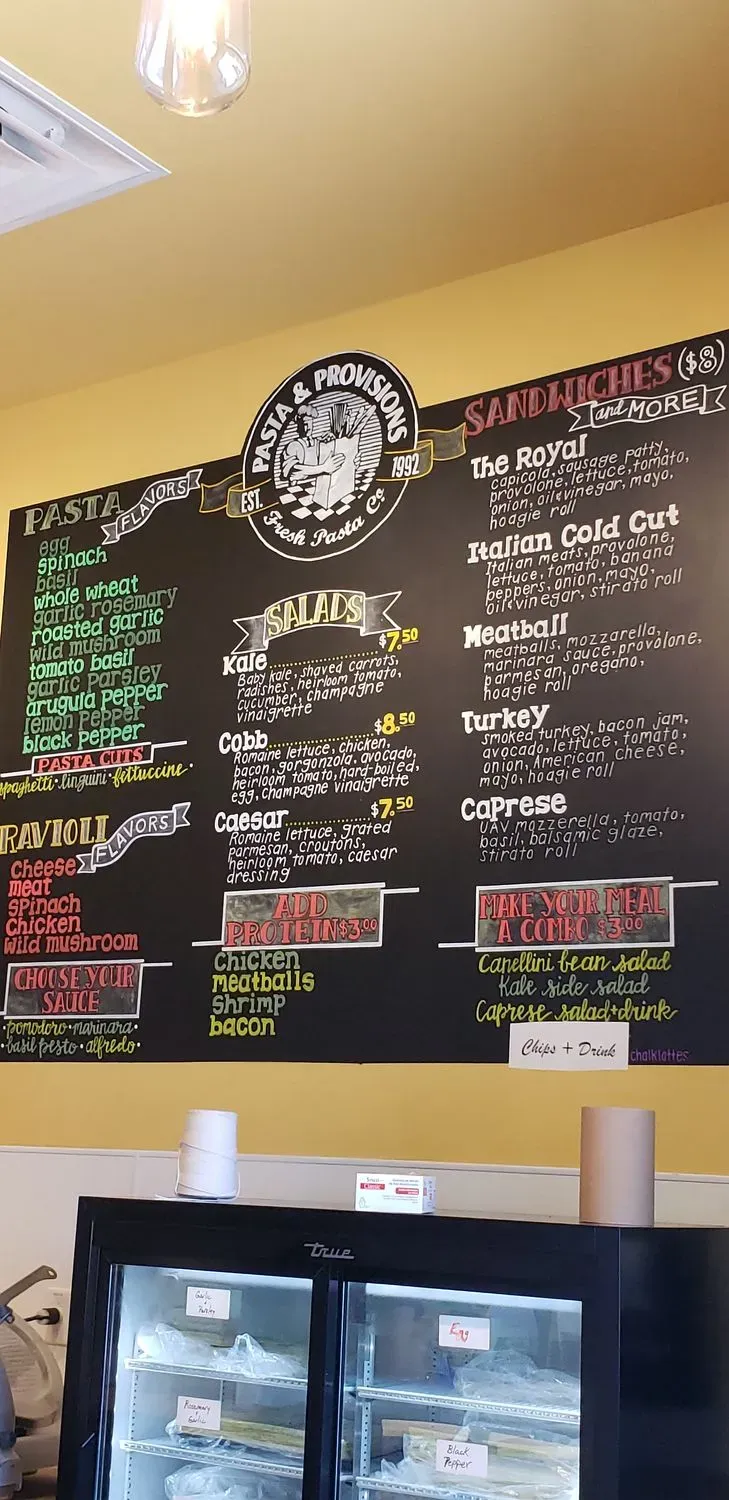 PASTA & PROVISIONS
EST. 1992
Fresh Pasta Co
PASTA FLAVORS
egg
spinach
basil
whole wheat
garlic rosemary
roasted garlic
wild mushroom
tomato basil
garlic parsley
arugula pepper
lemon pepper
black pepper
PASTA CUTS
spaghetti · linguini · fettuccine ·
RAVIOLI FLAVORS
Cheese
meat
spinach
Chicken
Wild mushroom
CHOOSE YOUR
SAUCE
· pomodoro · marinara ·
· basil pesto · alfredo ·
SALADS
Kale $7.50
Baby kale, shaved carrots,
radishes, heirloom tomato,
cucumber, champagne
vinaigrette
Cobb $8.50
Romaine lettuce, chicken,
bacon, gorgonzola, avocado,
heirloom tomato, hard-boiled,
egg, champagne vinaigrette
Caesar $7.50
Romaine lettuce, grated
parmesan, croutons,
heirloom tomato, caesar
dressing
ADD
PROTEIN $3.00
Chicken
meatballs
shrimp
bacon
SANDWICHES ($8)
and MORE
The Royal
capicola, sausage patty,
provolone, lettuce, tomato,
onion, oil & vinegar, mayo,
hoagie roll
Italian Cold Cut
Italian meats, provolone,
lettuce, tomato, banana
peppers, onion, mayo,
oil & vinegar, stirato roll
Meatball
meatballs, mozzarella,
marinara sauce, provolone,
parmesan, oregano,
hoagie roll
Turkey
smoked turkey, bacon jam,
avocado, lettuce, tomato,
onion, American cheese,
mayo, hoagie roll
Caprese
UAV mozzerella, tomato,
basil, balsamic glaze,
stirato roll
MAKE YOUR MEAL
A COMBO $3.00
Canellini bean salad
Kale side salad
Caprese salad + drink
Chips + Drink
chalklottes
true
Garlic
Parsley
Egg
Rosemary
Garlic
Black
Pepper